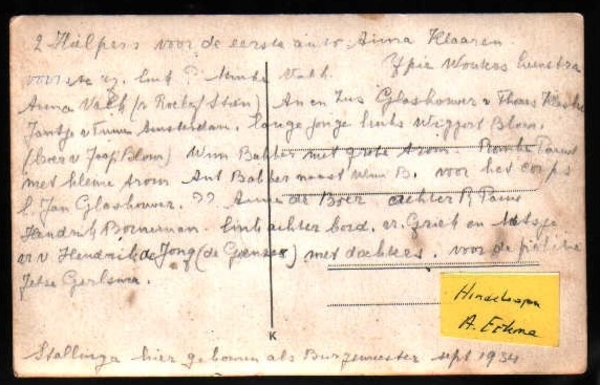 2 Hielpers voor de eerste auto. Anna Klaaren.
voorste rij. links ? Valk. Ypie Woukes
Anna Valk (v Roelof Stien) An en Jus Glashouwer v Thoms
Jantje v Amsterdam. lange jonge links Wiggert Blom.
(broer v Jaap Blom) Wim Bakker met grote trom. Romke Parent
met kleine trom Ant Bakker naast Wim B. voor het corps
l. Jan Glashouwer. ?? Anna de Boer achter R Parent
Hendrik Borneman. links achter bord. vr. Griek en
vr v Hendrik de Jong (de Ganzer) met dochters. voor de
Jetse Gerlsma.
Hindeloopen
A. Eekma
K
Stallinga hier gekomen als Burgemeester sept 1934